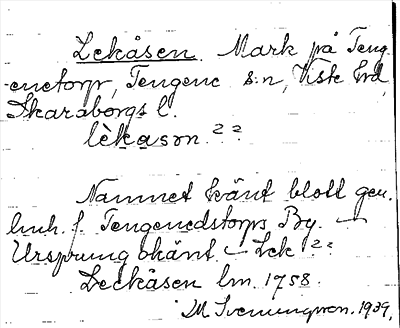 Lekåsen. Mark på Teng-
enetorp, Tengene s:n, Viste hrd,
Skaraborgs l.
lèkasơn ? ?
Namnet känt blott gen.
lmh. f. Tengenedstorps By. —
Ursprung okänt. — Lek ??
Leckåsen lm. 1758.
M Svenungsson. 1939.